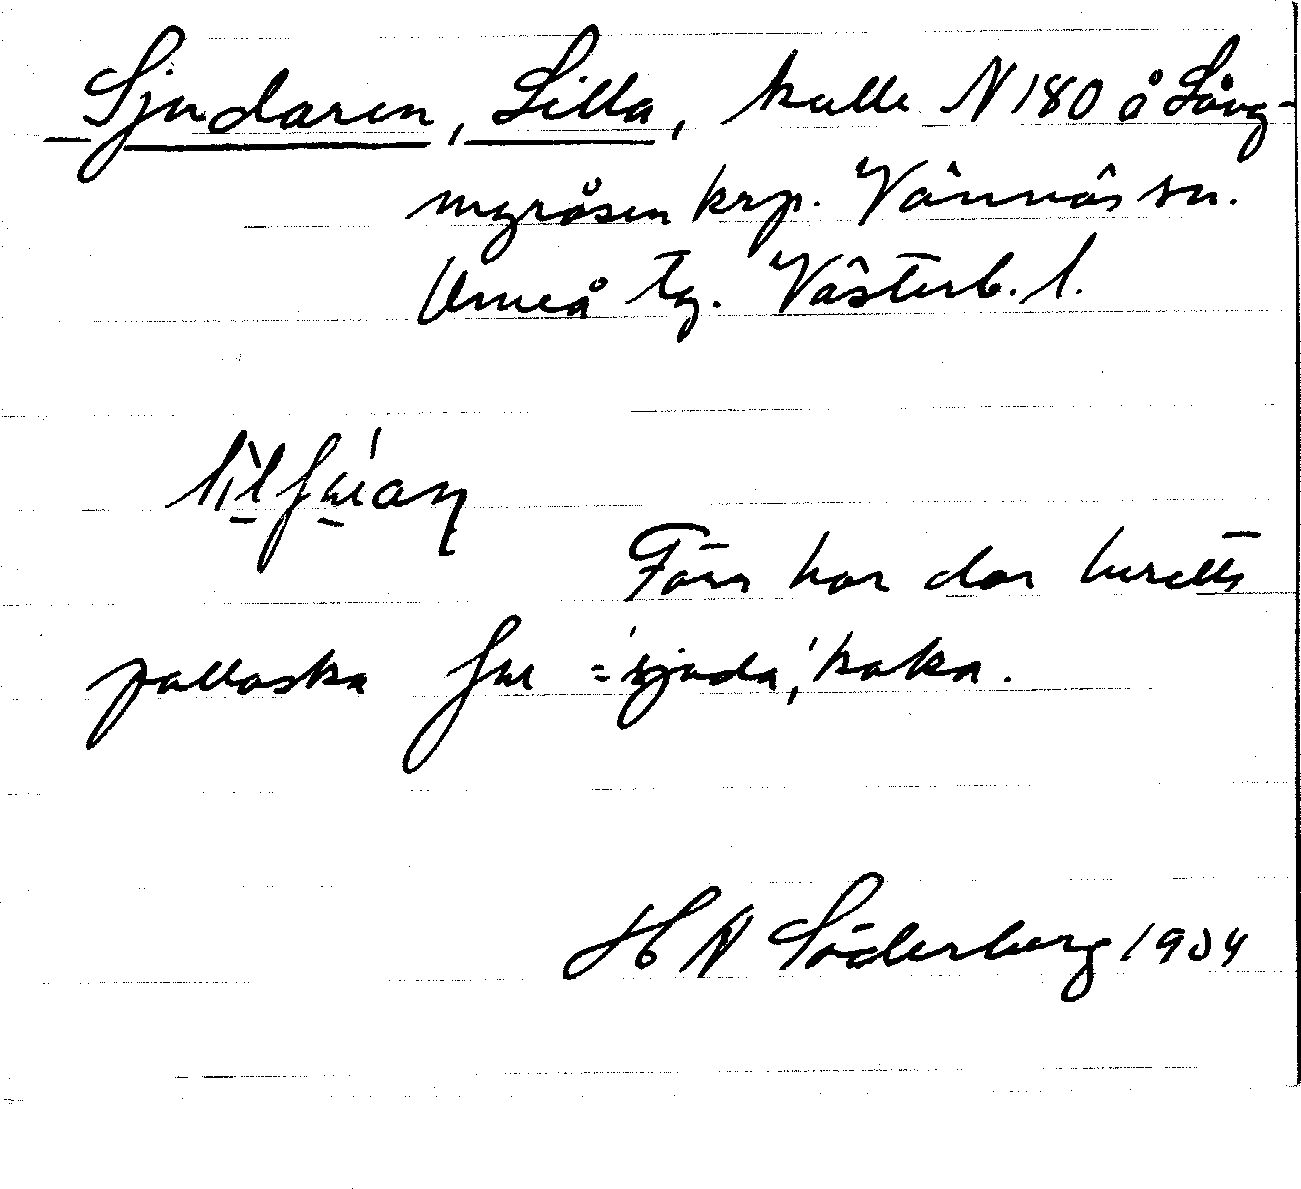 Sjudaren, Lilla, kulle N 180 å Lång-
myråsen krp. Vännäs sn.
Umeå tg. Västerb. l.
lìlʃúan
Förr har där beretts
pottaska ʃu = 'sjuda', 'koka.
H N Söderberg 1934